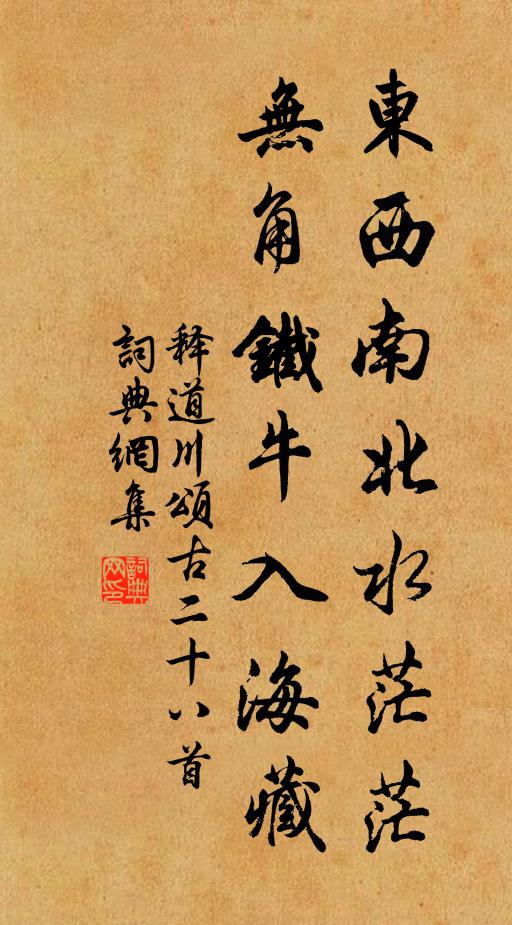 東西南北水茫茫
無角鐵牛入海藏
释道川頌古二十八首
詞典網集
詞典
网印